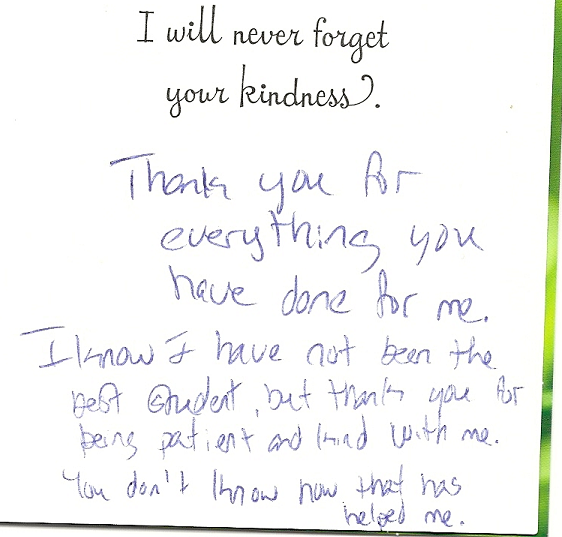 I will never forget
your kindness.
Thank you for
everything you
have done for me.
I know I have not been the
best student, but thank you for
being patient and kind with me.
You don't know how that has
helped me.